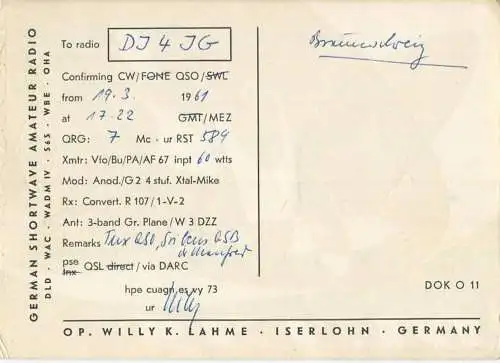 GERMAN SHORTWAVE AMATEUR RADIO
DLD · WAC · WADM IV · S6S · WBE · OHA
To radio DJ4JG
Confirming CW/FONE QSO/SWL
from 19.3. 1961
at 17.22 GMT/MEZ
QRG: 7 Mc · ur RST 589
Xmtr: Vfo/Bu/PA/AF 67 inpt 60 wtts
Mod: Anod./G 2 4 stuf. Xtal-Mike
Rx: Convert. R 107/1-V-2
Ant: 3-band Gr. Plane/W 3 DZZ
Remarks Tnx QSO, QSB
pse
tnx QSL direct/via DARC
hpe cuagn es vy 73
ur Willy
Braunschweig
DOK O 11
OP. WILLY K. LAHME · ISERLOHN · GERMANY